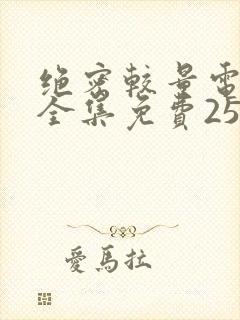 绝密较量電
全集免費25
愛馬拉